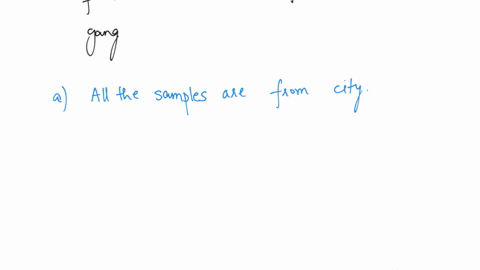 gang
a) All the samples are from city.